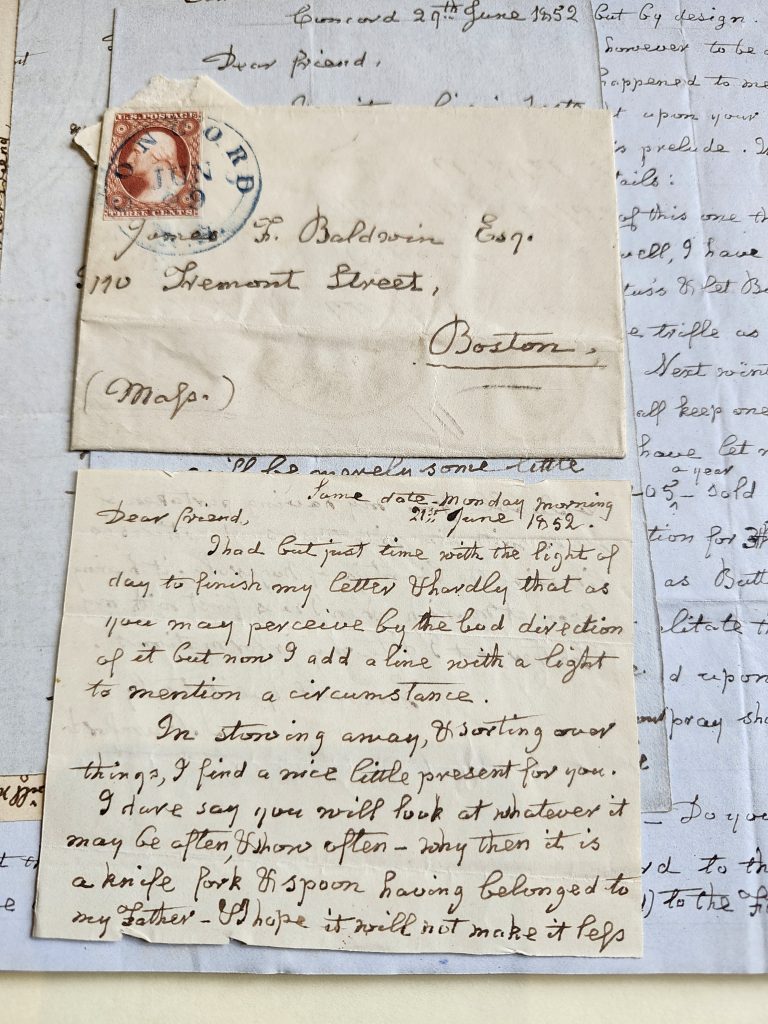 Concord 29th June 1852
Dear friend,
but by design.
however to be
happened to me
upon your
prelude.
of this one
well, I have
& let
trifle as
Next
all keep one
have let
a year
sold
tion for
as
litate
upon
pray
Do you
to the
to the
U.S. POSTAGE
THREE CENTS
CONCORD
JUN
29
James F. Baldwin Esq.
Tremont Street,
Boston,
(Mass.)
be merely some little
Same date - Monday morning
21st June 1852.
Dear friend,
I had but just time with the light of
day to finish my letter & hardly that as
you may perceive by the bad direction
of it but now I add a line with a light
to mention a circumstance.
In stowing away, & sorting over
things, I find a nice little present for you.
I dare say you will look at whatever it
may be often, & show often - why then it is
a knife fork & spoon having belonged to
my Father - & I hope it will not make it less